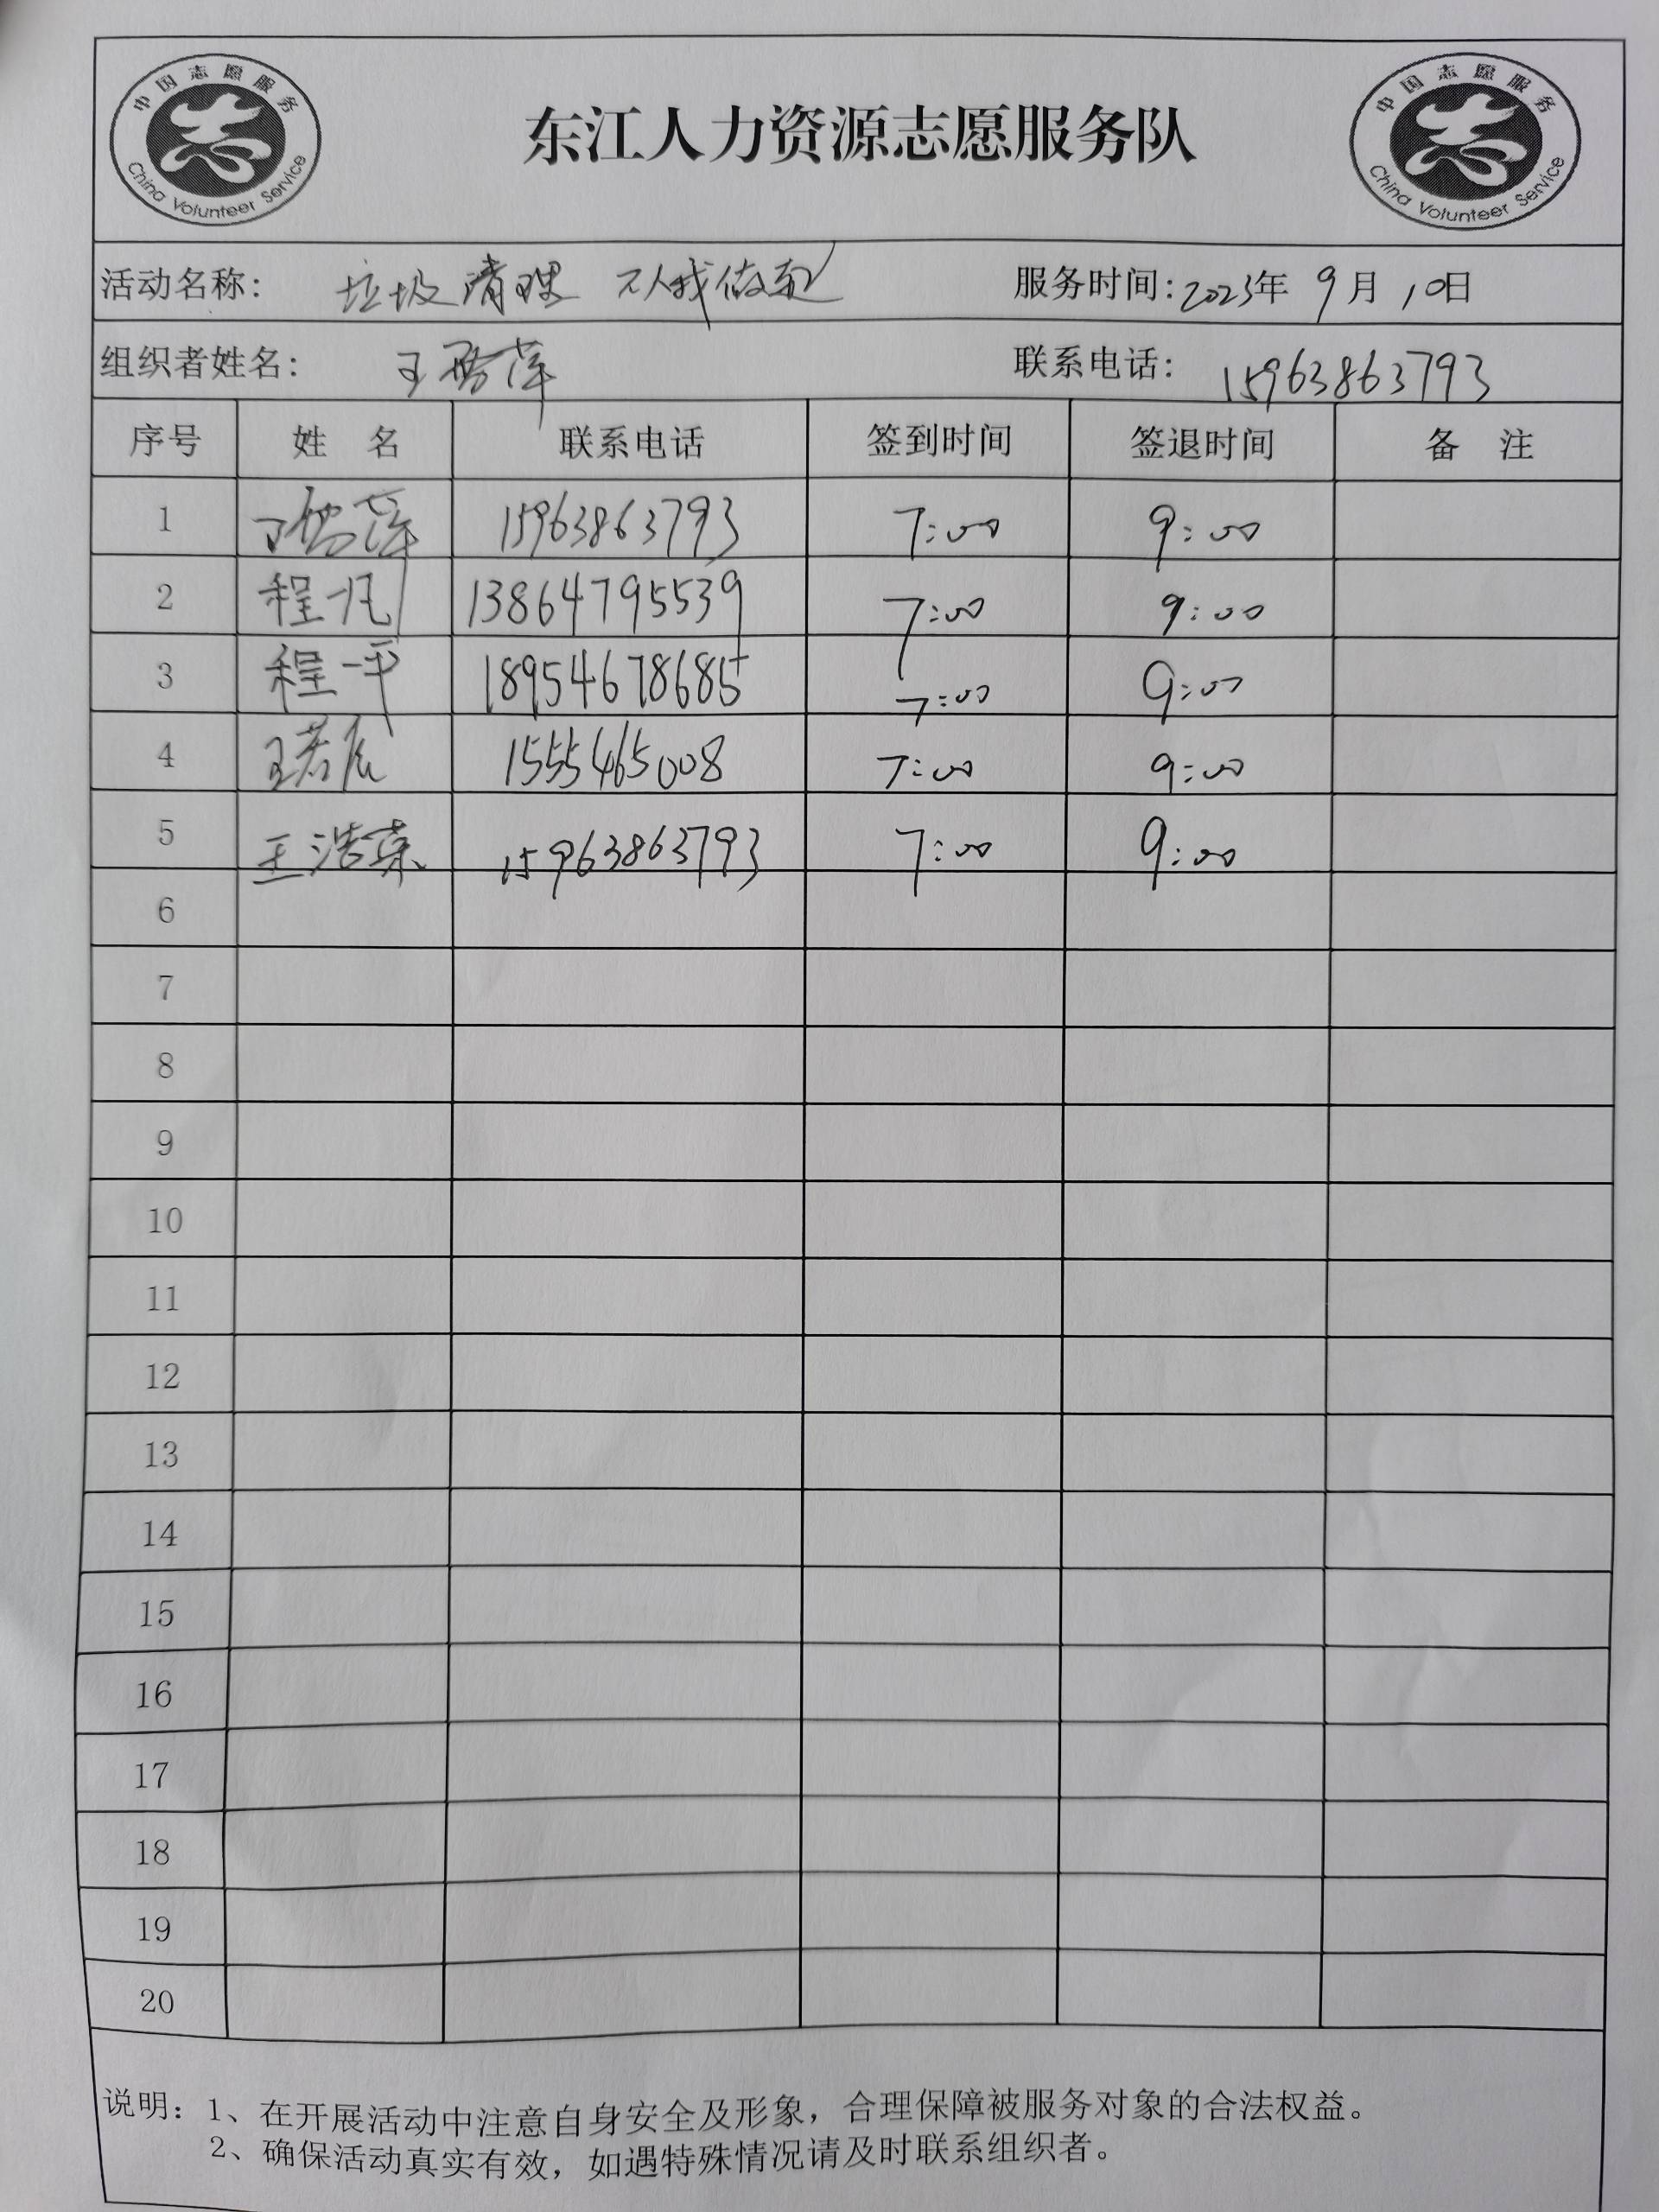 中国志愿服务
China Volunteer Service
东江人力资源志愿服务队
中国志愿服务
China Volunteer Service
活动名称: 垃圾清理 从我做起 服务时间: 2023年 9月 10日
组织者姓名: 王 萍 联系电话: 15963863793
序号 姓 名 联系电话 签到时间 签退时间 备 注
1 萍 15963863793 7:00 9:00
2 程一凡 13864795539 7:00 9:00
3 程一平 18954678685 7:00 9:00
4 王若辰 1555465008 7:00 9:00
5 王浩荣 15963863793 7:00 9:00
6
7
8
9
10
11
12
13
14
15
16
17
18
19
20
说明: 1、在开展活动中注意自身安全及形象，合理保障被服务对象的合法权益。
2、确保活动真实有效，如遇特殊情况请及时联系组织者。